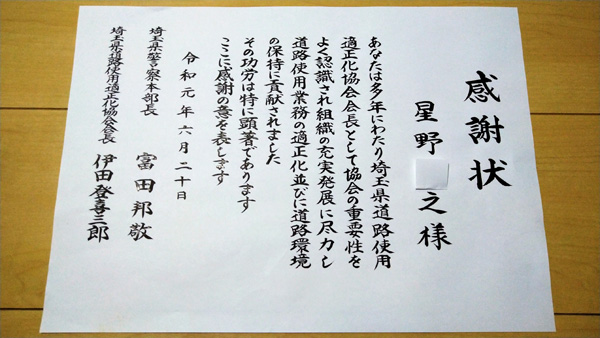 感謝状
星野 之様
あなたは多年にわたり埼玉県道路使用
適正化協会会長として協会の重要性を
よく認識され組織の充実発展に尽力し
道路使用業務の適正化並びに道路環境
の保持に貢献されました
その功労は特に顕著であります
ここに感謝の意を表します
令和元年六月二十日
埼玉県警察本部長 富田邦敬
埼玉県道路使用適正化協会会長 伊田登喜三郎